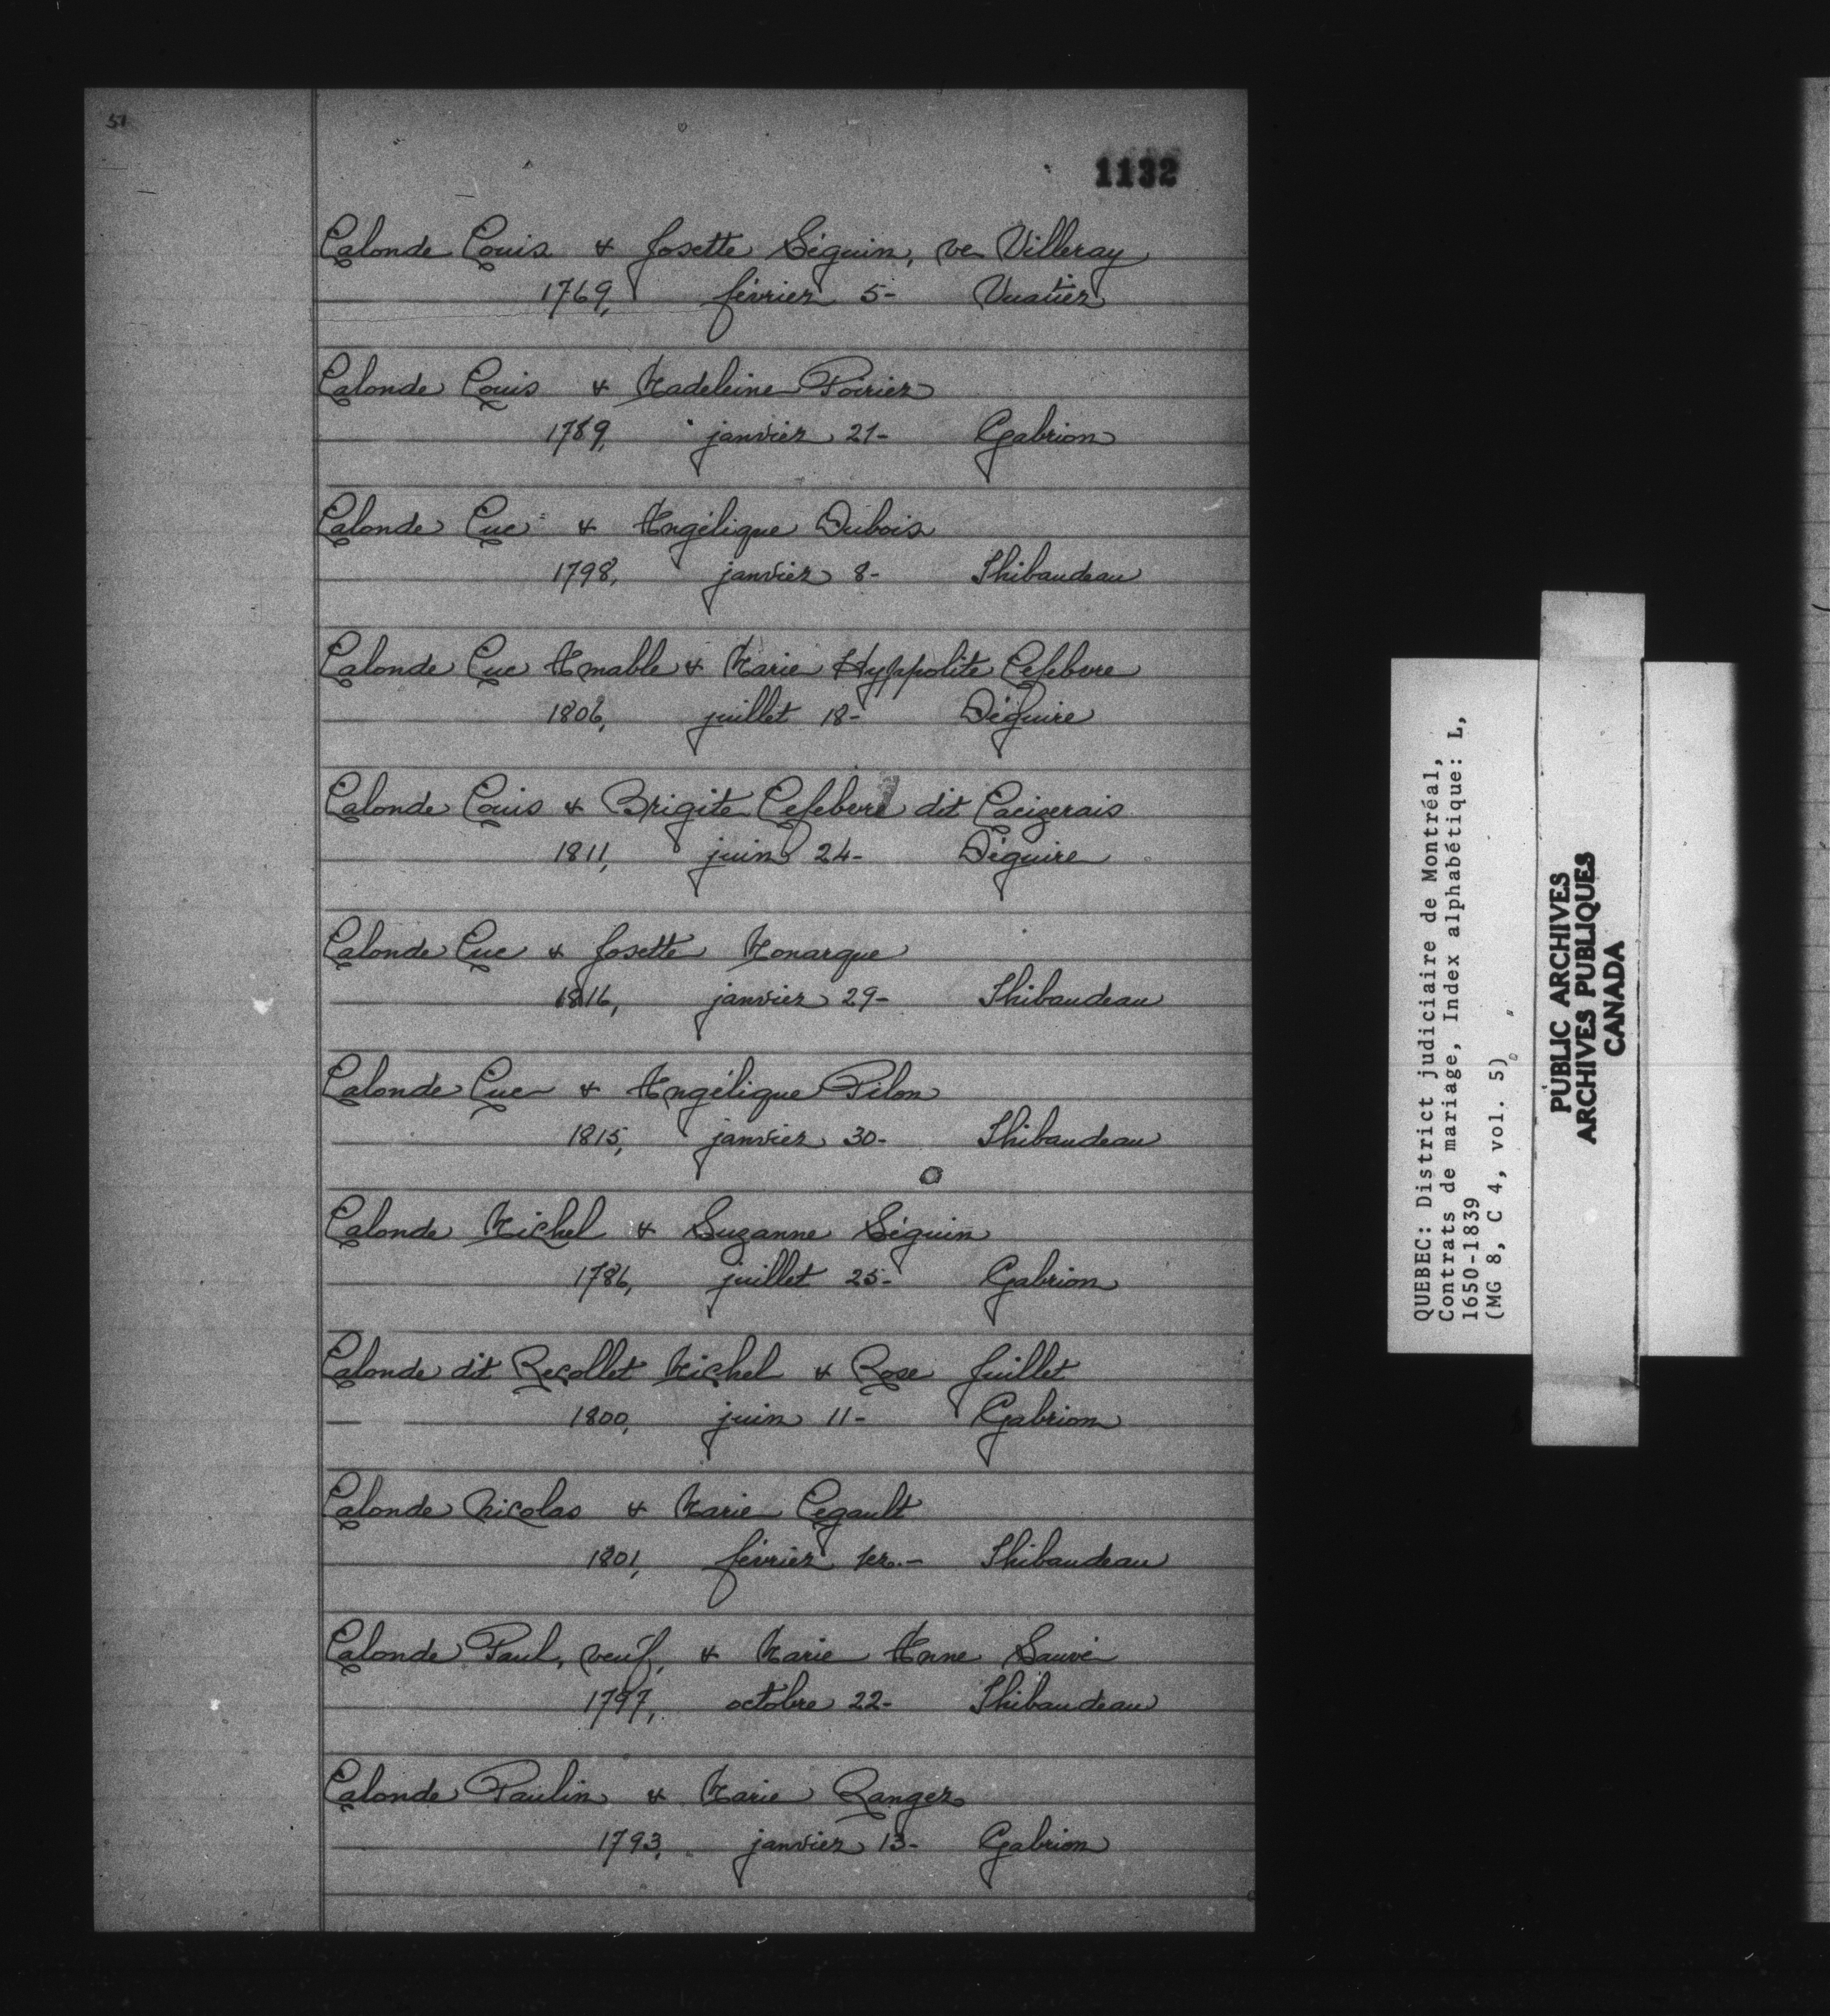 51
1132
Lalonde Louis & Josette Séguin, ve Villeray
1769, février 5- Vuatier
Lalonde Louis & Madeleine Poirier
1789, janvier 21- Gabrion
Lalonde Luc & Angélique Dubois
1798, janvier 8- Thibaudeau
Lalonde Luc Amable & Marie Hyppolite Lefebvre
1806, juillet 18- Déguire
Lalonde Louis & Brigite Lefebvre dit Laciserais
1811, juin 24- Déguire
Lalonde Luc & Josette Monarque
1816, janvier 29- Thibaudeau
Lalonde Luc & Angélique Pilon
1815, janvier 30- Thibaudeau
Lalonde Michel & Suzanne Séguin
1786, juillet 25- Gabrion
Lalonde dit Recollet Michel & Rose Juillet
1800, juin 11- Gabrion
Lalonde Nicolas & Marie Legault
1801, février 1er.- Thibaudeau
Lalonde Paul, veuf, & Marie Anne Sauvé
1797, octobre 22- Thibaudeau
Lalonde Paulin & Marie Ranger
1793, janvier 13- Gabrion
QUEBEC: District judiciaire de Montréal,
Contrats de mariage, Index alphabétique: L,
1650-1839
(MG 8, C 4, vol. 5)
PUBLIC ARCHIVES
ARCHIVES PUBLIQUES
CANADA